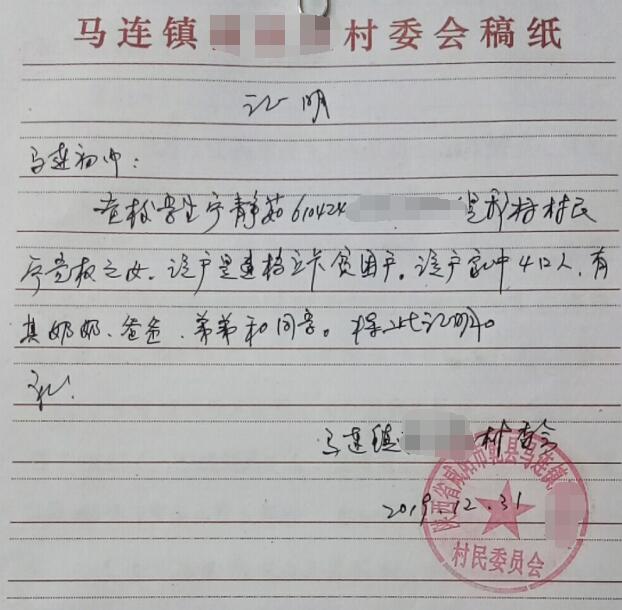 马连镇 村委会稿纸
证明
马连初中：
查校学生宁静茹610424 是我村村民
宁党权之女。该户是建档立卡贫困户。该户家中4口人，有
其奶奶、爸爸、弟弟和同学。特此证明
礼！
马连镇 村委会
2019.12.31
陕西省咸阳市乾县马连镇
村民委员会